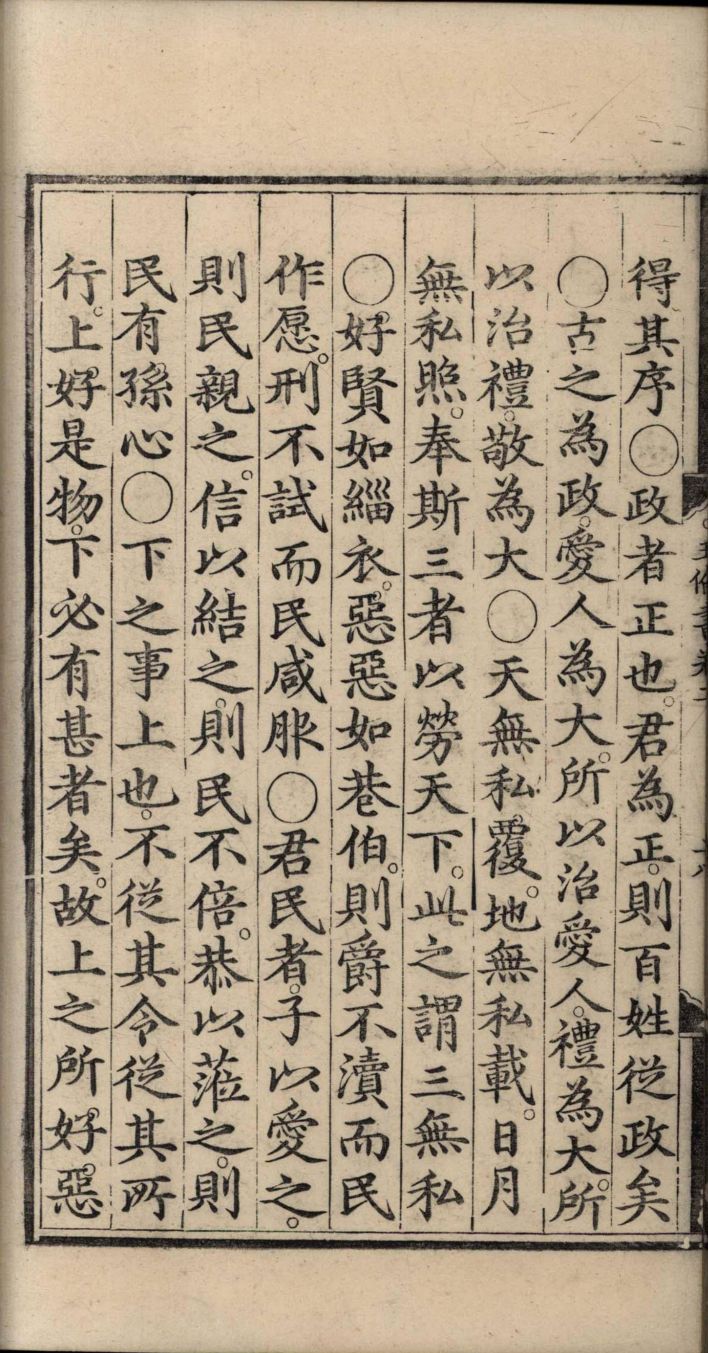 得其序○政者正也。君為正。則百姓從政矣
○古之為政。愛人為大。所以治愛人。禮為大。所
以治禮。敬為大○天無私覆。地無私載。日月
無私照。奉斯三者以勞天下。此之謂三無私
○好賢如緇衣。惡惡如巷伯。則爵不瀆而民
作愿。刑不試而民咸服○君民者。子以愛之。
則民親之。信以結之。則民不倍。恭以蒞之。則
民有孫心○下之事上也。不從其令從其所
行。上好是物。下必有甚者矣。故上之所好惡